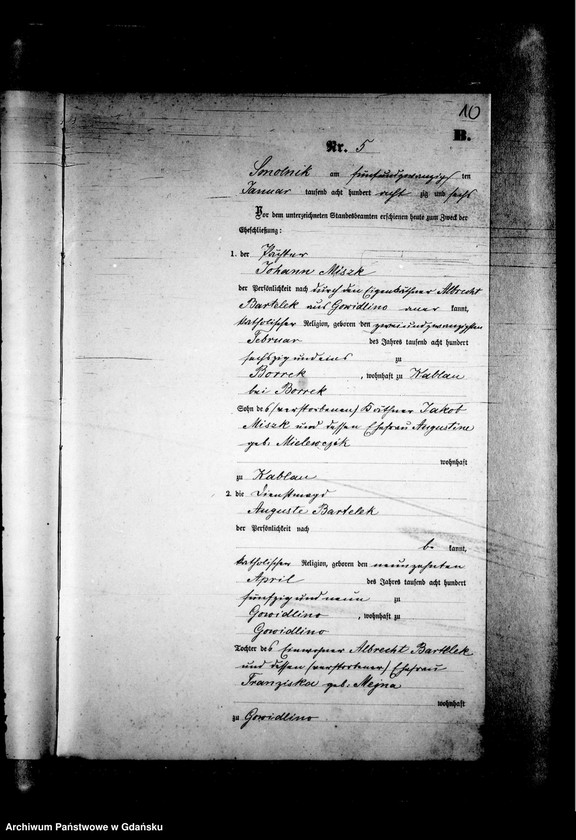 10
B.
Nr. 5
Smolnik am fünfundzwanzigsten
Januar tausend acht hundert achtzig und sechs
Vor dem unterzeichneten Standesbeamten erschienen heute zum Zweck der
Eheschließung:
1. der
Johann Miszk
der Persönlichkeit nach durch den Eigenkäthner Albrecht
Bartelek aus Gowidlino aner kannt,
katholischer Religion, geboren den zweiundzwanzigsten
Februar des Jahres tausend acht hundert
sechszig und eins zu
Borrek, wohnhaft zu Kablau
bei Borrek
Sohn des (verstorbenen) Käthner Jakob
Miszk und dessen Ehefrau Augustine
geb. Mielewczyk
wohnhaft
zu Kablau
2. die Dienstmagd
Auguste Bartelek
der Persönlichkeit nach
be kannt,
katholischer Religion, geboren den neunzehnten
April des Jahres tausend acht hundert
fünfzig und neun zu
Gowidlino, wohnhaft zu
Gowidlino
Tochter des Einwohner Albrecht Bartelek
und dessen (verstorbener) Ehefrau
Franziska geb. Mejna
wohnhaft
zu Gowidlino
Archiwum Państwowe w Gdańsku